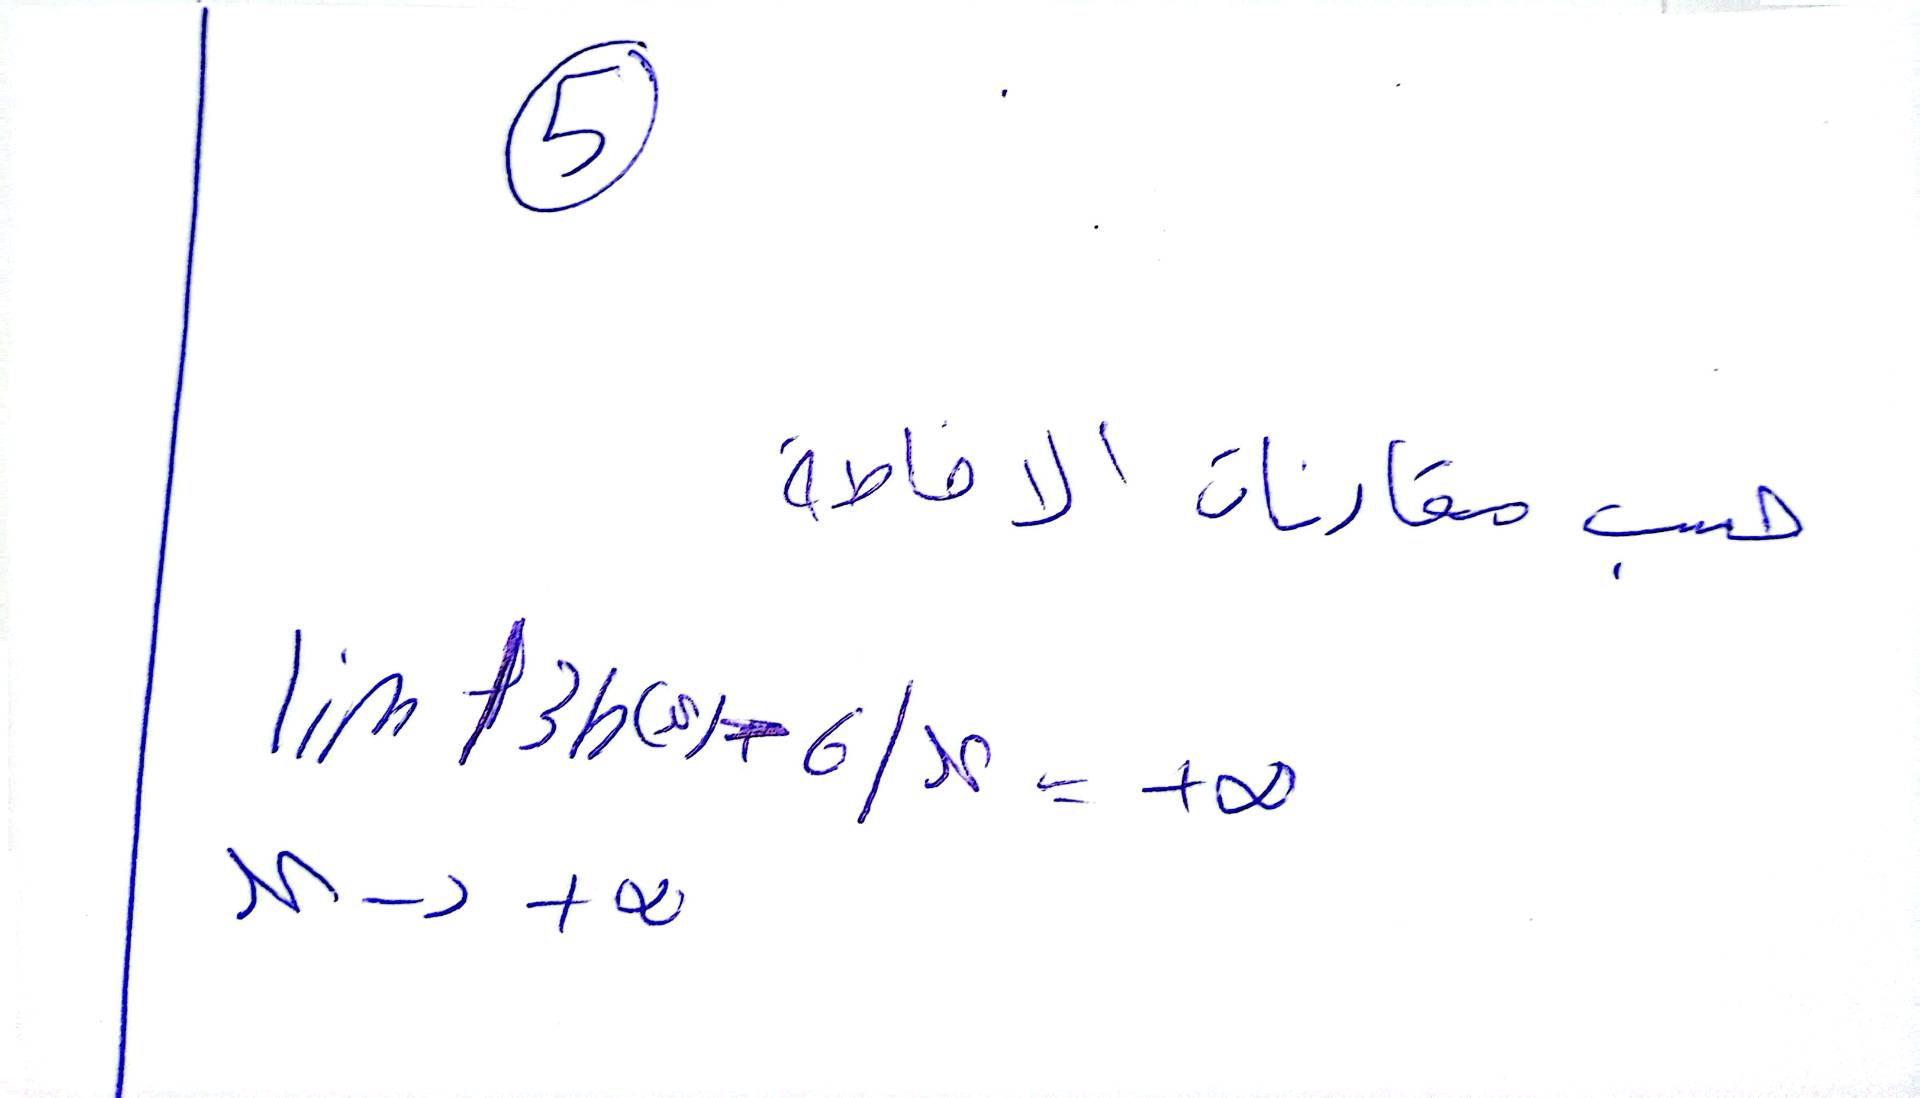 5
حسب مقارنات الافاطة
lim +3h(x)+6/x = +∞
x -> +∞